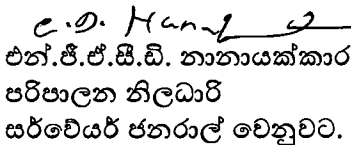 එන්.ජී.ඒ.සී.ඩී. නානායක්කාර
පරිපාලන නිලධාරි
සර්වේයර් ජනරාල් වෙනුවට.